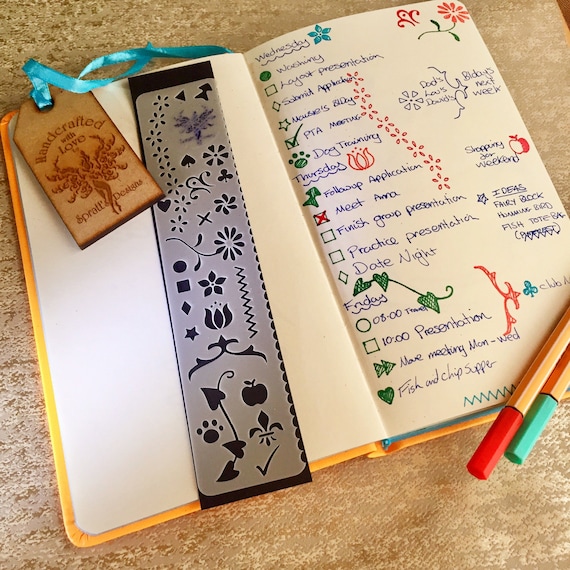 Handcrafted
with
Love
Spratt Designs
Wednesday
Washing
Layout presentation
Submit Application
Mousie's Bday
PTA MEETING
Dog Training
Thursday
Followup Application
Meet Anna
Finish group presentation
Practice presentation
Date Night
Friday
08:00 Travel
10:00 Presentation
Move meeting Mon-Wed
Fish and chip supper
Dad's
Bdays
next
week
Shopping
for
weekend
IDEAS
FAIRY BLOCK
HUMMING BIRD
FISH TOTE BAG
club